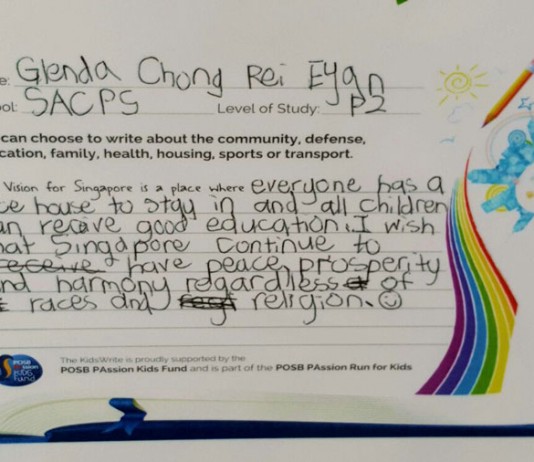 e: Glenda Chong Rei Eyan
ool: SACPS Level of Study: P2
can choose to write about the community, defense,
cation, family, health, housing, sports or transport.
Vision for Singapore is a place where everyone has a
ce house to stay in and all children
an receive good education. I wish
hat Singapore continue to
receive have peace, prosperity
nd harmony regardless of
races and religion.
The KidsWrite is proudly supported by the
POSB PAssion Kids Fund and is part of the POSB PAssion Run for Kids